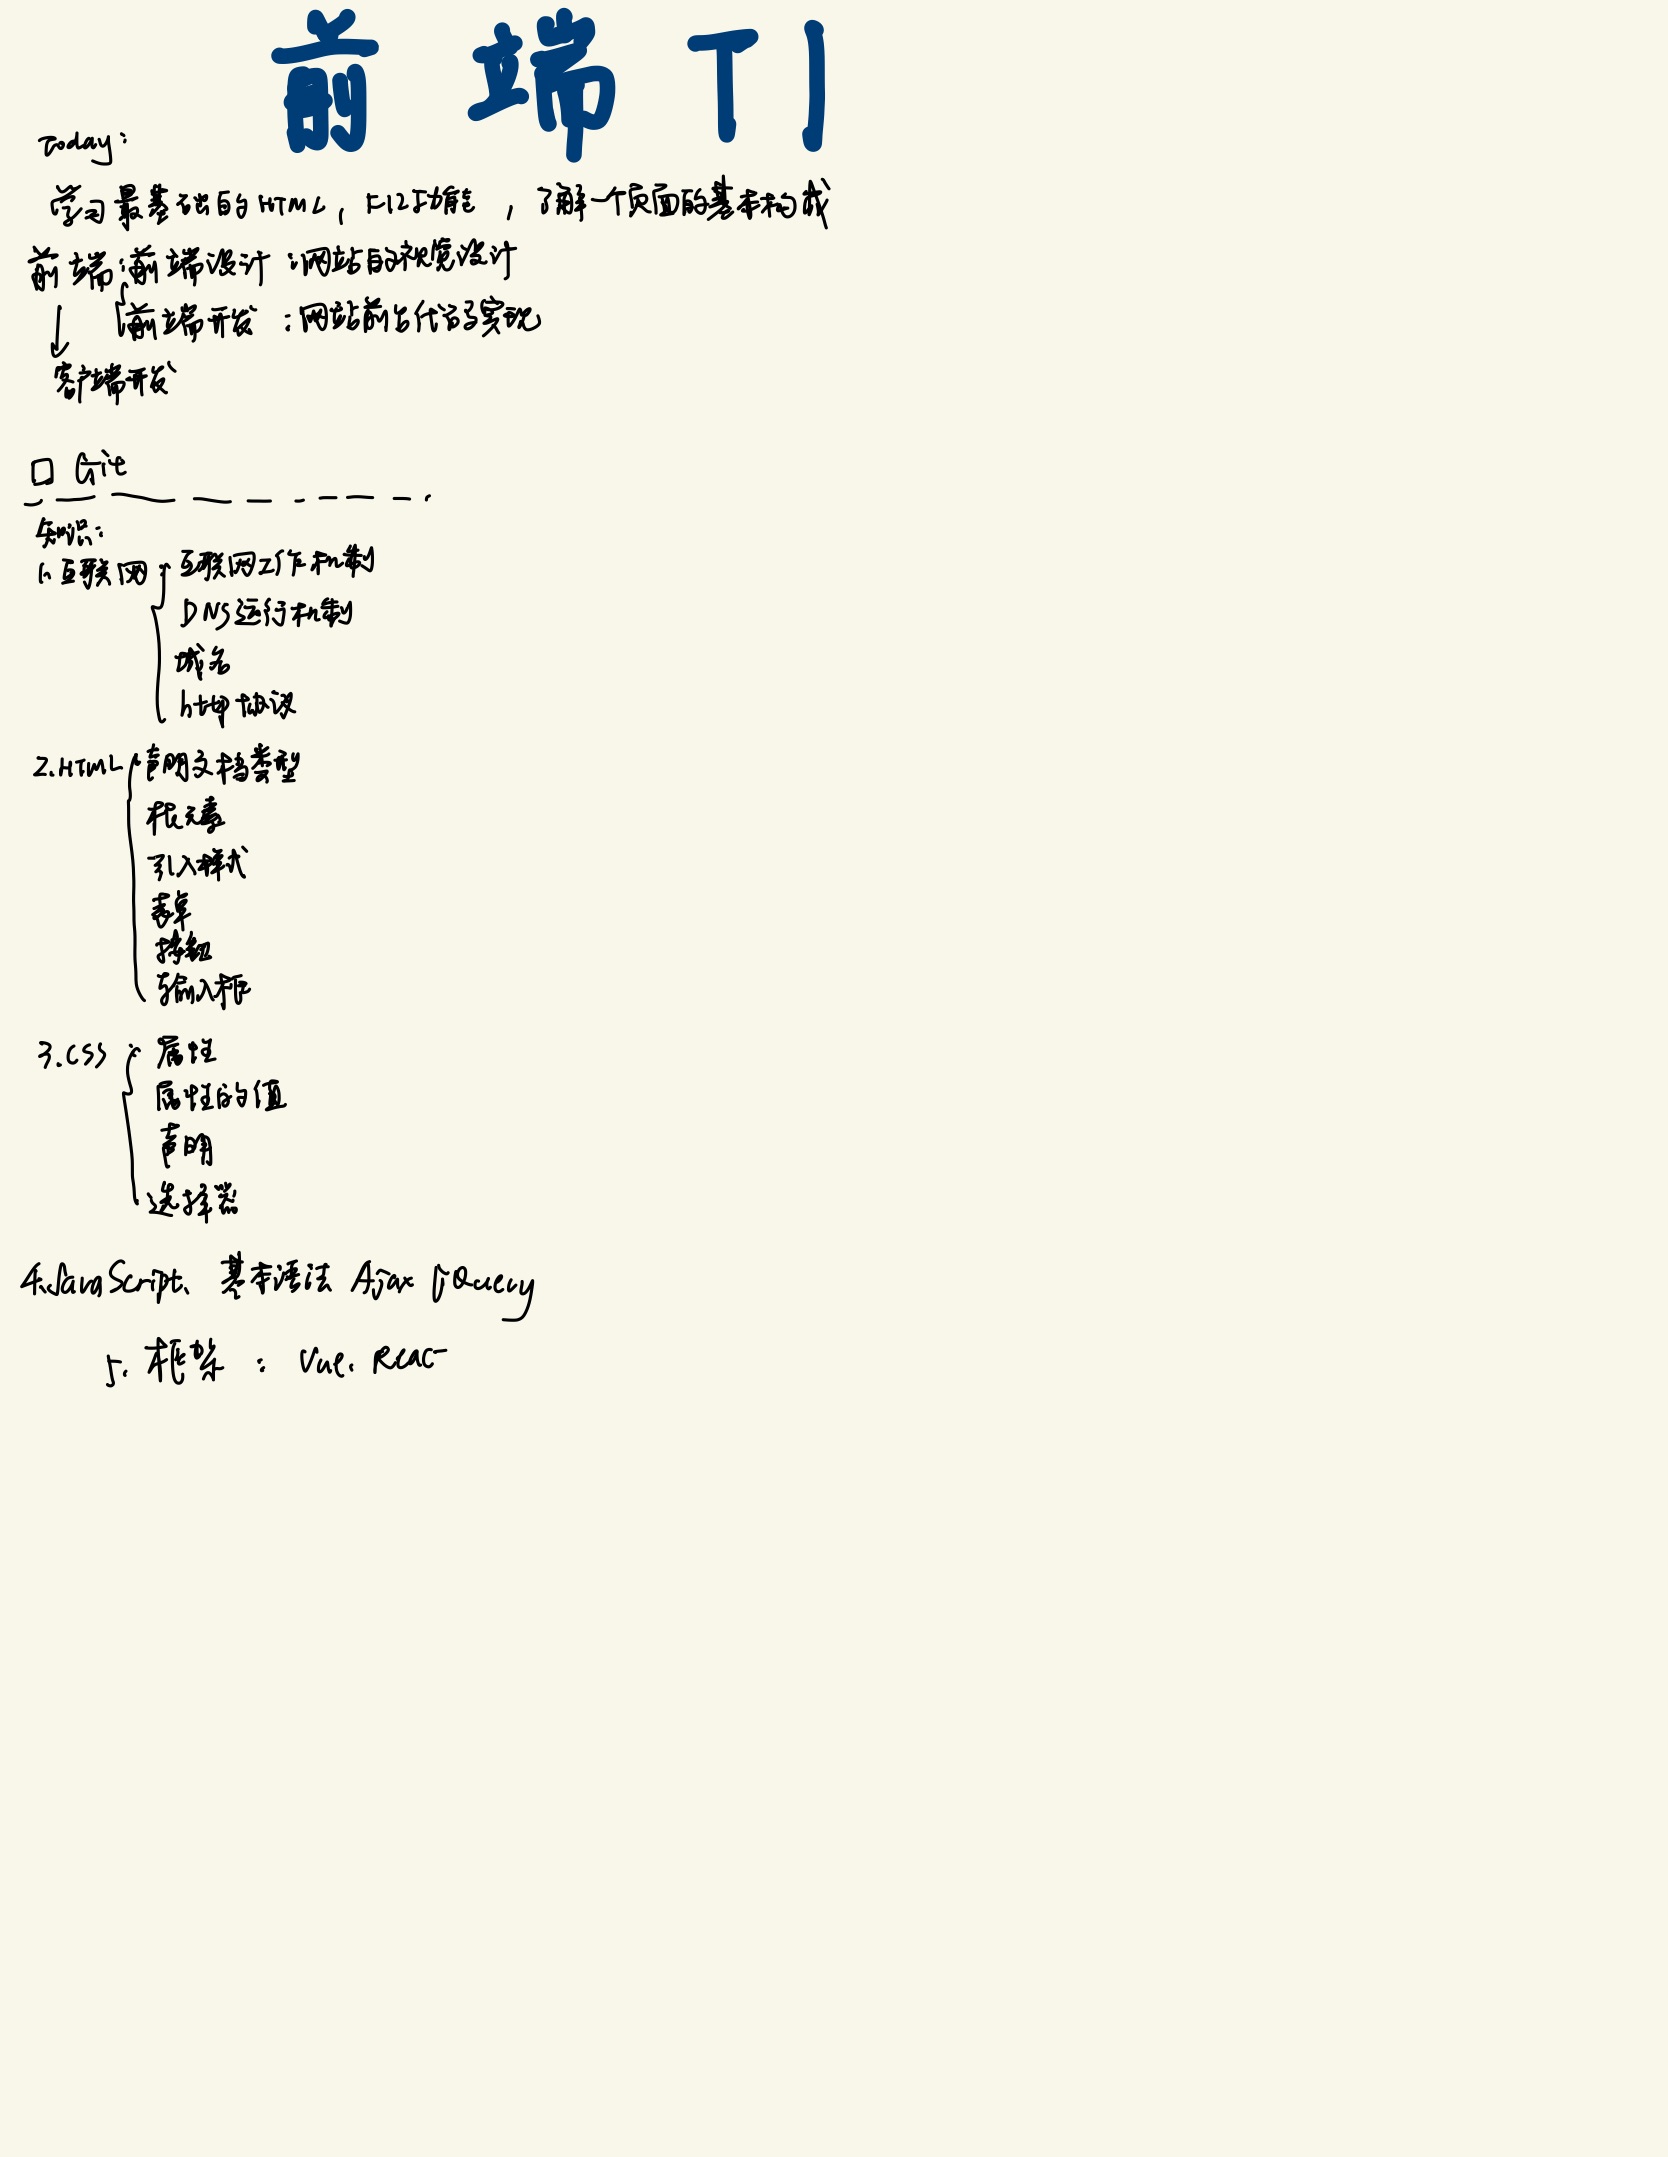 前端 T1
Today:
学习最基础的HTML, F12功能 , 了解一个页面的基本构成
前端:前端设计 :网站的视觉设计
前端开发 :网站前台代码实现
↓
客户端开发
□ Git
知识:
1.互联网:互联网工作机制
DNS运行机制
域名
http协议
2.HTML:声明文档类型
根元素
引入样式
表单
按钮
输入框
3.CSS:属性
属性的值
声明
选择器
4.JavaScript、基本语法 Ajax jQuery
5.框架 : Vue. React